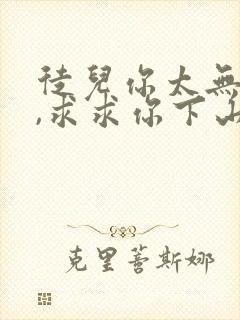 徒兒你太無
,求求你下山
克里蒼斯娜